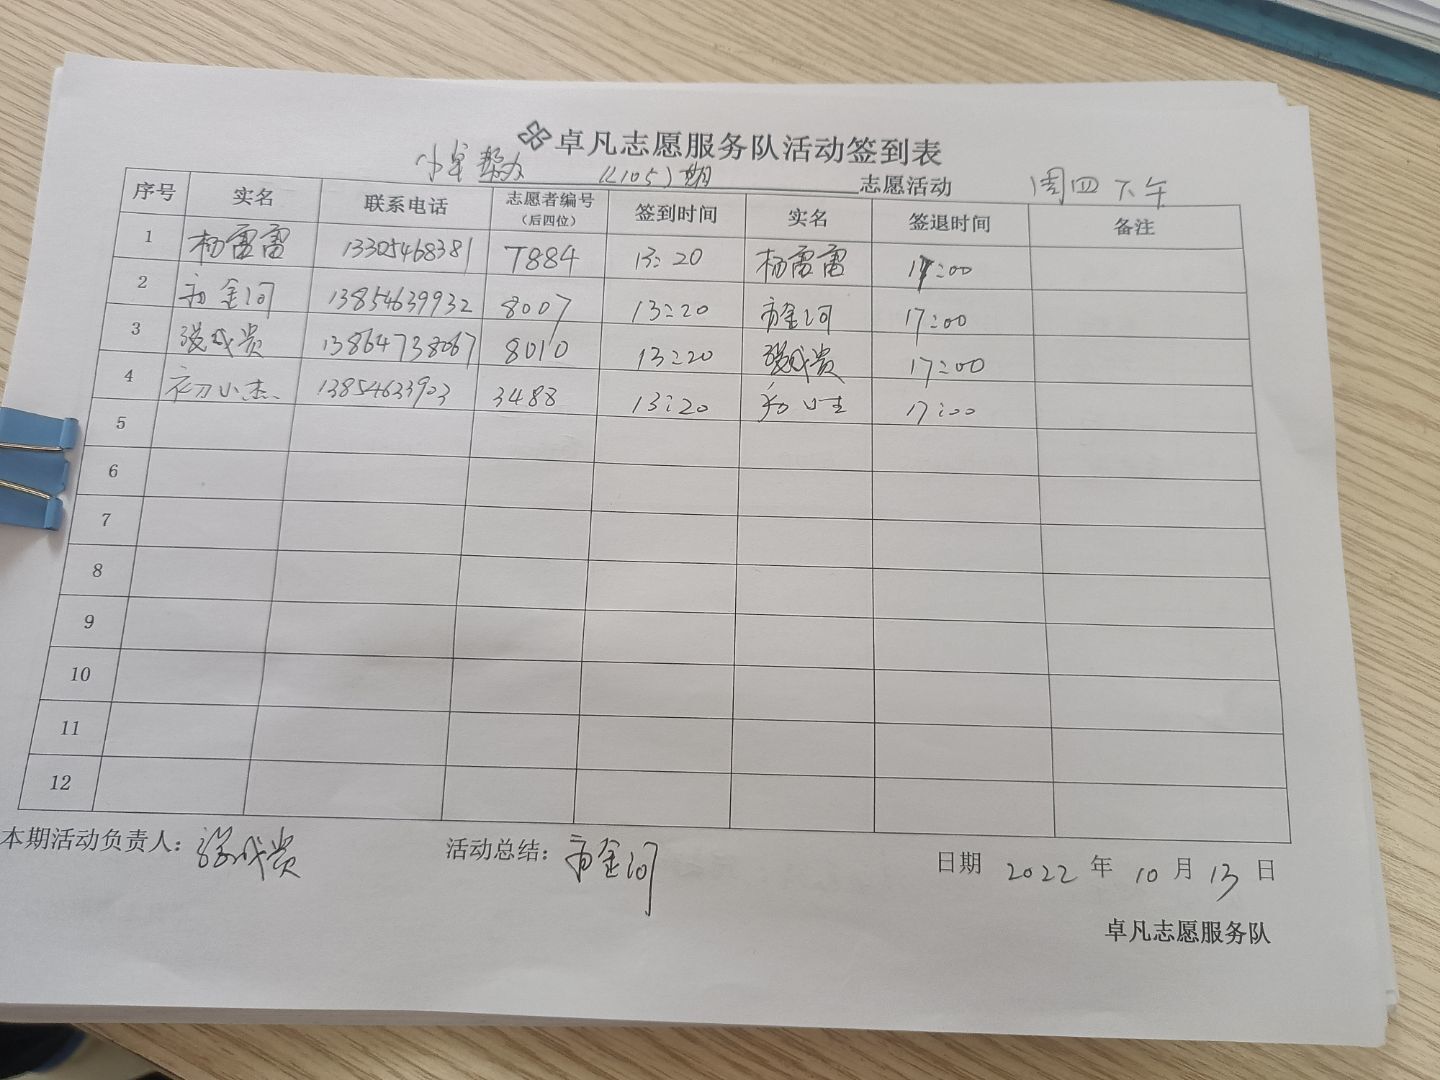 卓凡志愿服务队活动签到表
小卓帮办 (105)期 志愿活动 周四下午
序号 实名 联系电话 志愿者编号(后四位) 签到时间 实名 签退时间 备注
1 杨雷雷 13305468381 7884 13:20 杨雷雷 17:00
2 金河 13854639932 8007 13:20 金河 17:00
3 张成贵 13864738067 8010 13:20 张成贵 17:00
4 初小杰 13854633903 3488 13:20 17:00
5
6
7
8
9
10
11
12
本期活动负责人: 张成贵 活动总结: 金河 日期 2022 年 10 月 13 日
卓凡志愿服务队